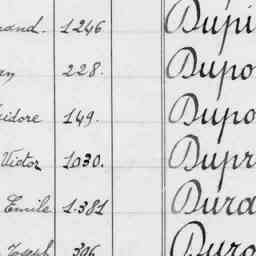 mand. 1246 Dupi
an 228. Dupo
sidore 149. Dupo
Victor 1030. Dupr
Emile 1.381 Dura
Joseph 306 Dura